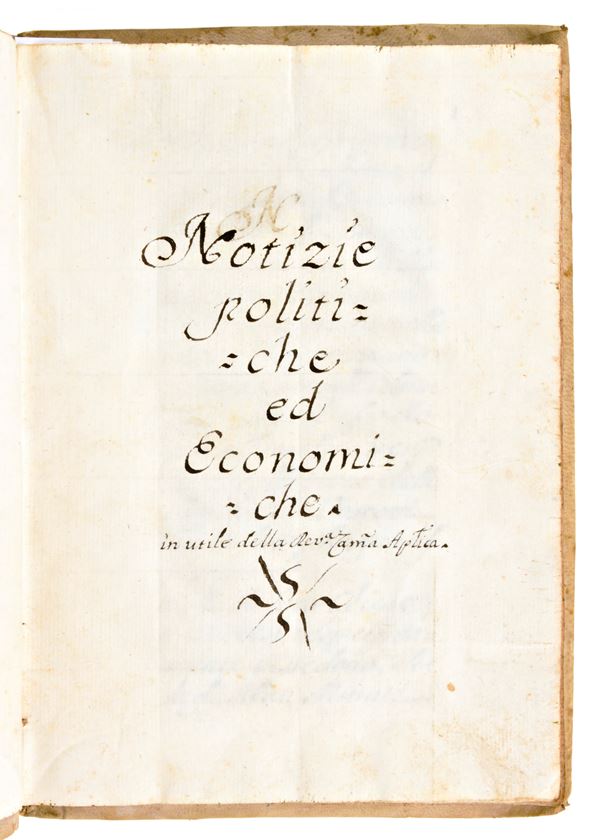 N
Notizie
politi=
=che
ed
Economi=
=che.
in utile della Rev.ª Cam̃a Ap̃lica.